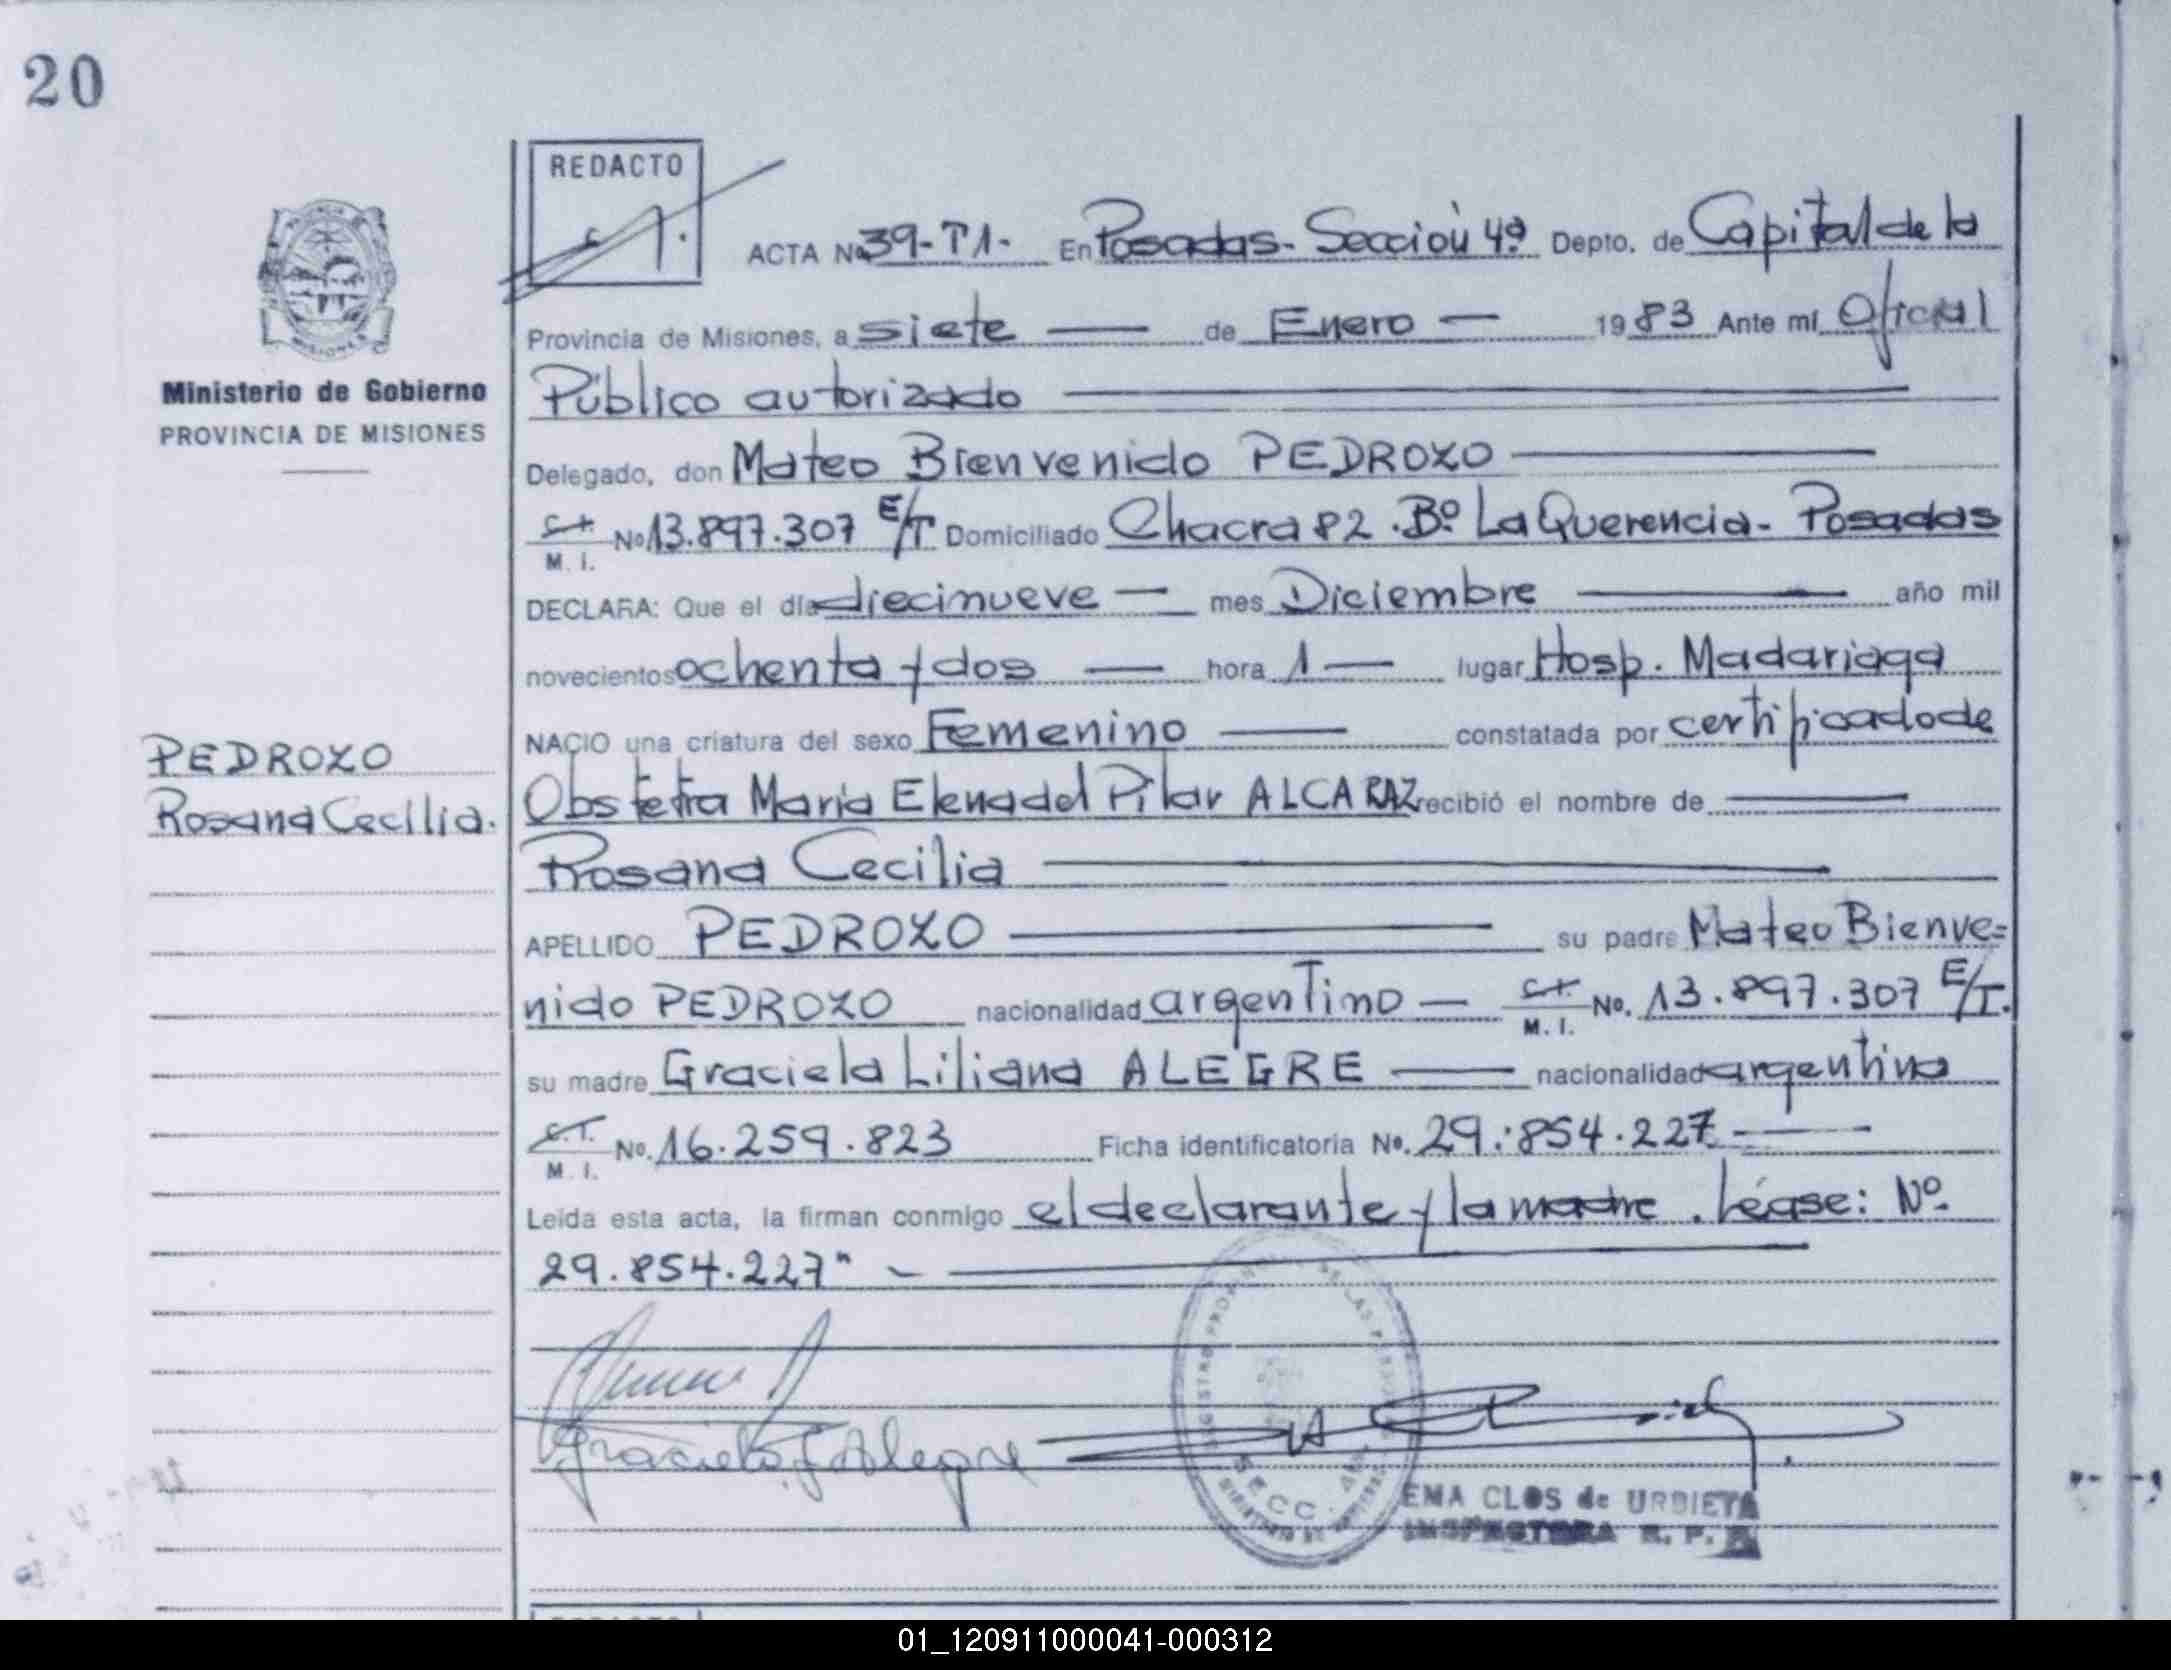 20
REDACTO
ACTA Nº 39-T1- En Posadas- Sección 4ª Depto. de Capital de la
Provincia de Misiones, a siete de Enero 1983 Ante mí Oficial
Ministerio de Gobierno
PROVINCIA DE MISIONES
Público autorizado
Delegado, don Mateo Bienvenido PEDROZO
C.I. M. I. Nº 13.897.307 E/T Domiciliado Chacra 82 . Bº La Querencia- Posadas
DECLARA: Que el día diecinueve mes Diciembre año mil
novecientos ochenta y dos hora 1 lugar Hosp. Madariaga
NACIO una criatura del sexo Femenino constatada por certificado de
PEDROZO
Rosana Cecilia.
Obstetra María Elena del Pilar ALCARAZ recibió el nombre de
Rosana Cecilia
APELLIDO PEDROZO su padre Mateo Bienve=
nido PEDROZO nacionalidad argentino C.I. M. I. Nº. 13.897.307 E/T.
su madre Graciela Liliana ALEGRE nacionalidad argentina
C.I. M. I. Nº. 16.259.823 Ficha identificatoria Nº. 29.:854.227
Leída esta acta, la firman conmigo el declarante y la madre . Léase: Nº
29.854.227"
Graciela L Alegre
SECC. 4ª
EMA CLOS de URBIETA
INSPECTORA R. P. P.
01_120911000041-000312